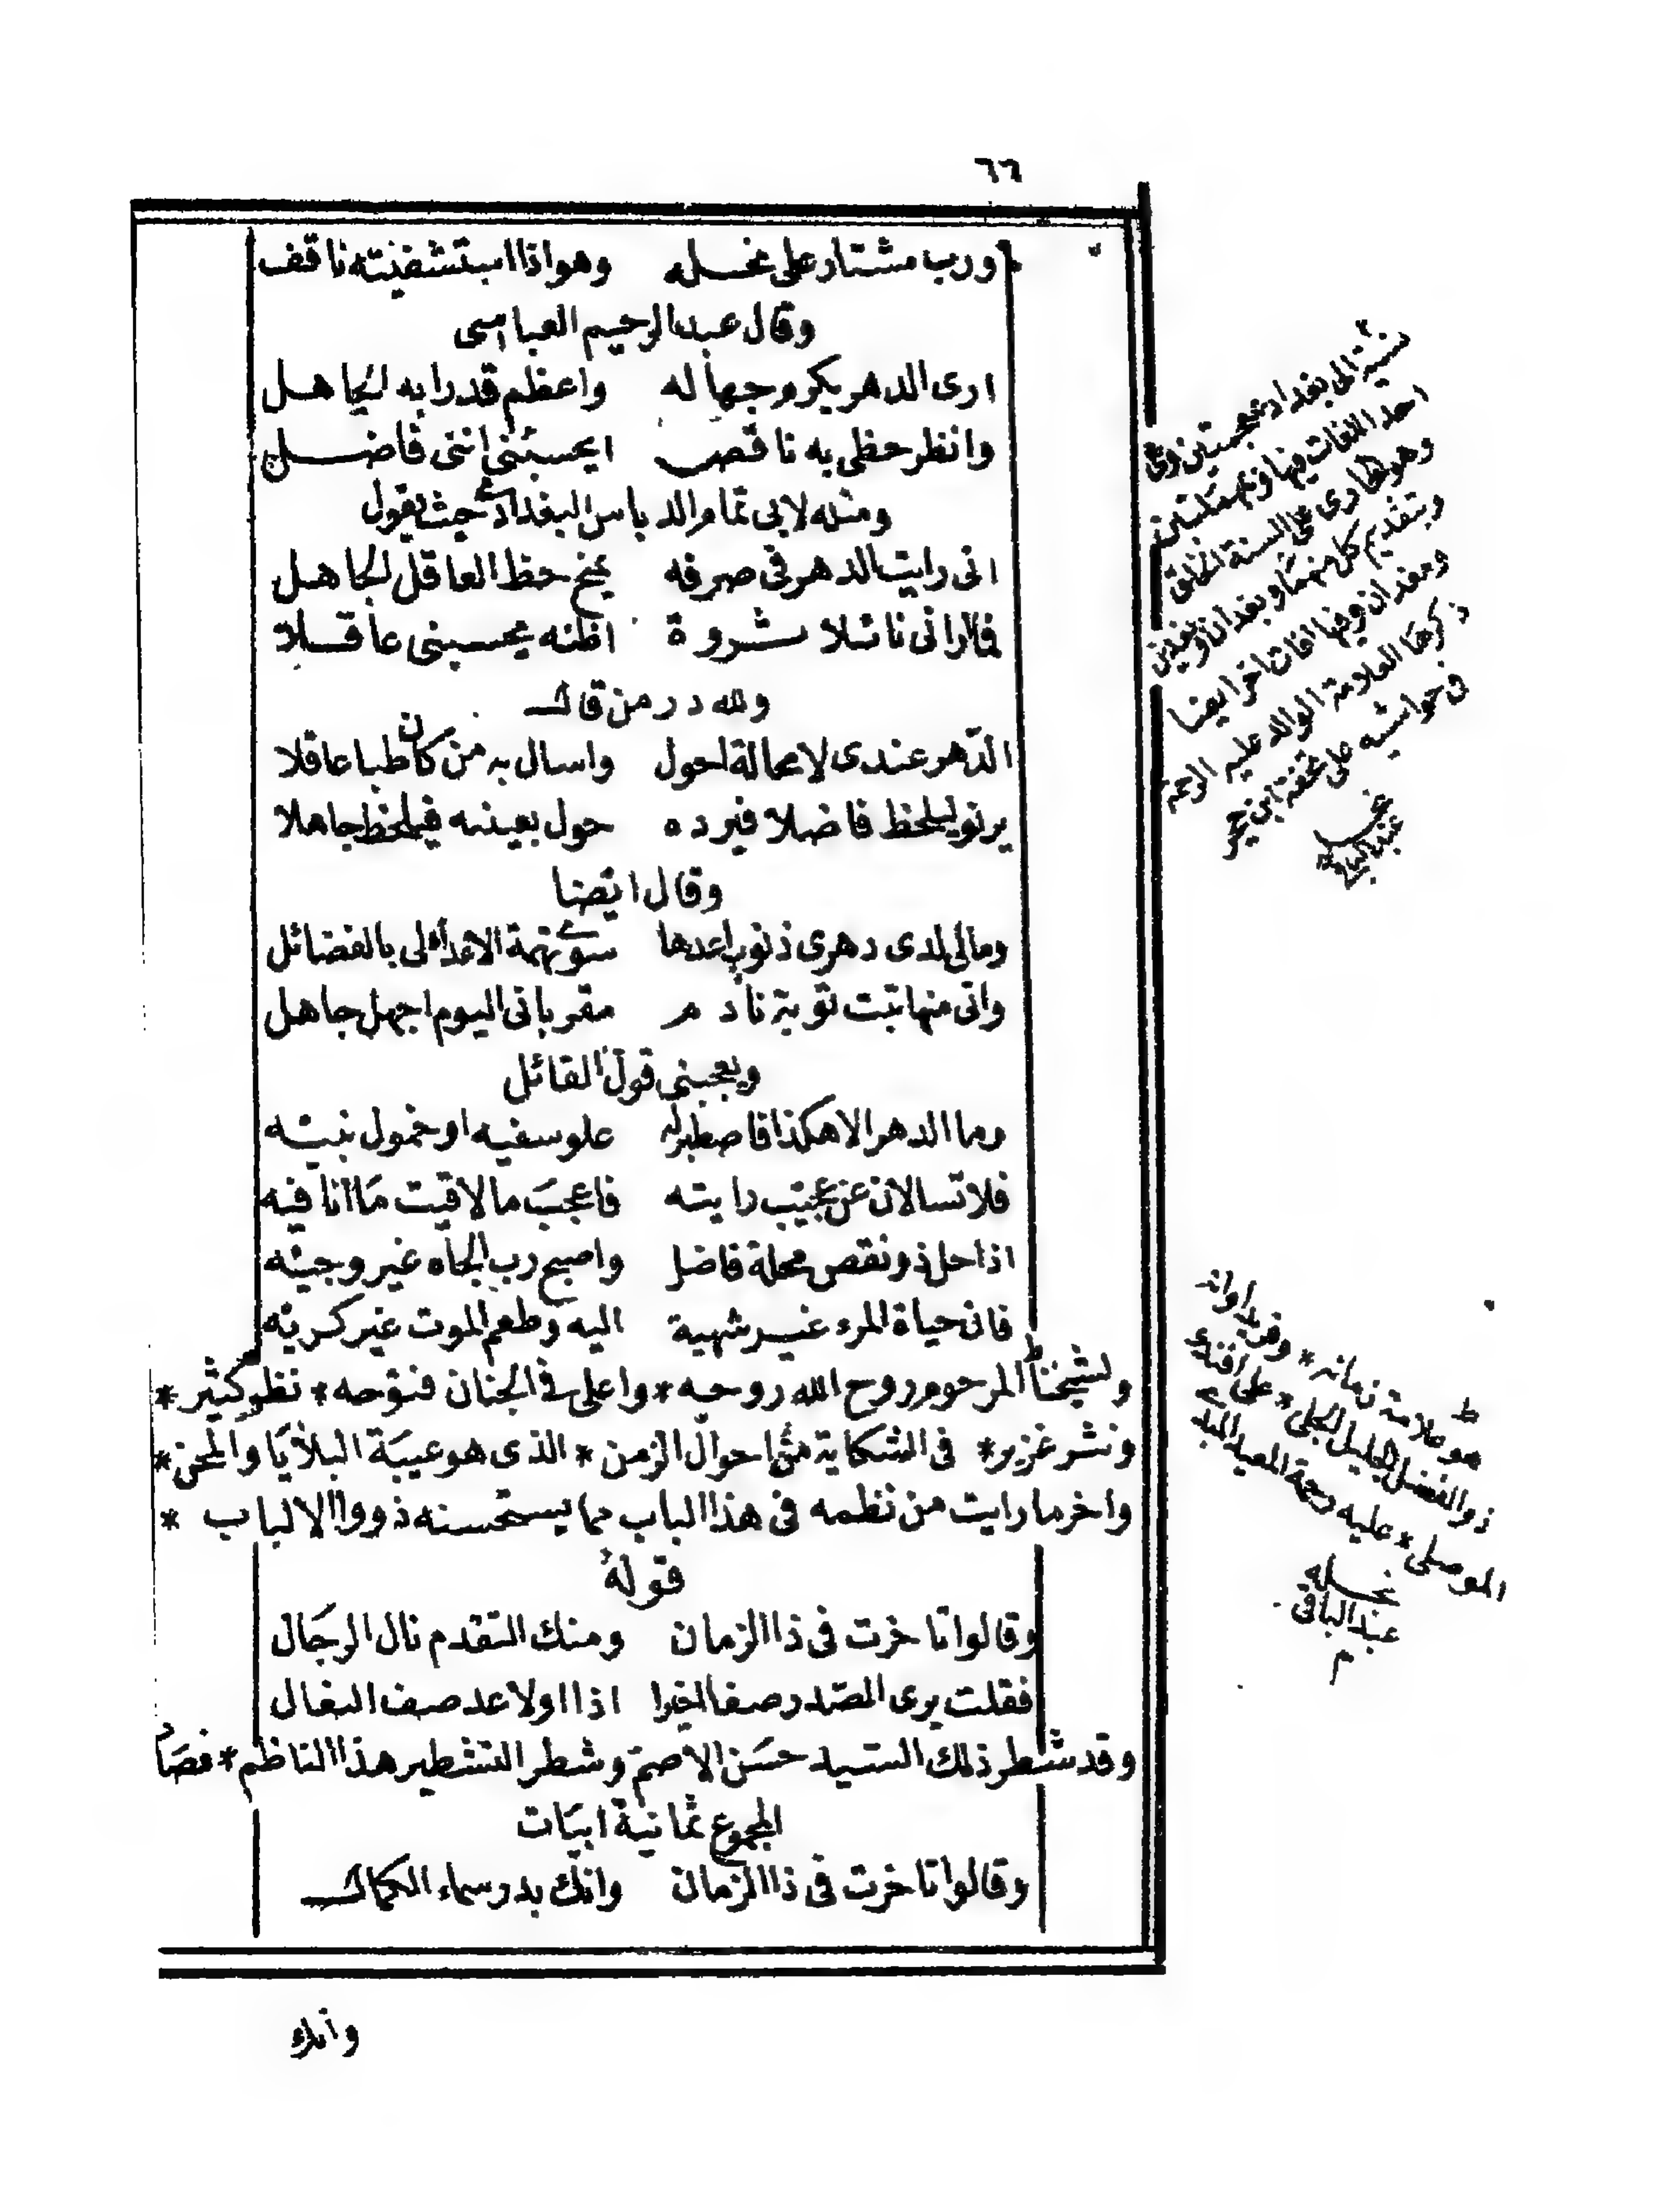 ٦٦
ورب مشتار على نحله وهو اذا استشفيته ناقف
وقال عبد الرحيم العباسى
ارى الدهر يكرم جهاله واعظم قدرا به الجاهل
وانظر حظى به ناقص ايحسبنى اننى فاضل
ومثله لابى تمام الدباس البغدادى حيث يقول
انى رايت الدهر فى صرفه يمنح حظ العاقل الجاهل
فما ارانى نائلا ثروة اظنه يحسبنى عاقلا
ولله در من قال
الدهر عندى لا محالة احول واسال به من كان طبا عاقلا
يرنو ليلحظ فاضلا فيرده حول بعينه فيلحظ جاهلا
وقال ايضا
ومالى لدى دهرى ذنوب اعدها سوى تهمة الاعداء لى بالفضائل
وانى منها تبت توبة نادم مقر بانى اليوم اجهل جاهل
ويعجبنى قول القائل
وما الدهر الا هكذا فاصطبر له علو سفيه او خمول نبيه
فلا تسالان عن عجيب رايته فاعجب ما لاقيت ما انا فيه
اذا حل ذو نقص محلة فاضل واصبح رب الجاه غير وجيه
فان حياة المرء غير شهية اليه وطعم الموت غير كريه
ولشيخنا المرحوم روح الله روحه * واعلى فى الجنان فتوحه * نظم كثير *
ونثر غزير * فى الشكاية من احوال الزمن * الذى هو عيبة البلايا والمحن *
واخر ما رايت من نظمه فى هذا الباب مما يستحسنه ذووا الالباب *
قوله
وقالوا تاخرت فى ذا الزمان ومنك التقدم نال الرجال
فقلت يرى الصدر صف اخيرا اذا اولا عد صف البغال
وقد شطر ذلك السيد حسن الاصم وشطر التشطير هذا الناظم * فصار
المجموع ثمانية ابيات
وقالوا تاخرت فى ذا الزمان وانك بدر سماء الكمال
وانك
نسبة الى بغداد بمعجمتين وهى
احد اللغات فيها وبمهملتين
وهو الجارى على السنة الخلق
وبتقديم كل منهما وبغدان وبغدين
ومغدان وفيها لغات اخر ايضا
ذكرها العلامة الوالد عليه الرحمة
فى حواشيه على تحفة ابن حجر
هو علامة زمانه * وفريد اوانه
ذو الفضل الجليل الجلى * على افندى
الموصلى * عليه رحمة المعيد المبدى
نجله
عبد الباقى
م